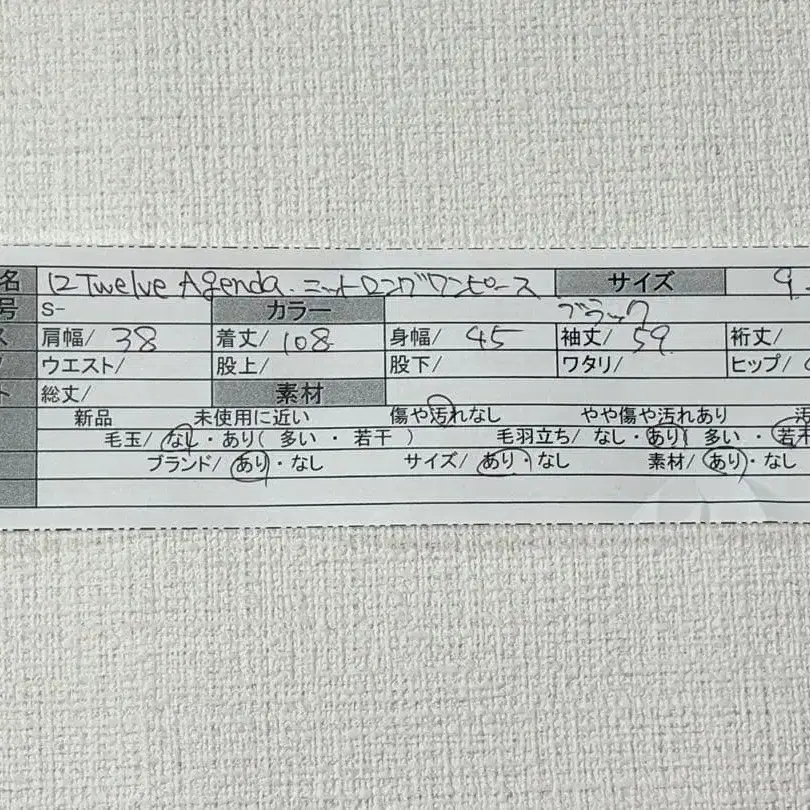 名 12 Twelve Agenda. ニットロングワンピース サイズ 9
号 S- カラー ブラック
ス 肩幅/ 38 着丈/ 108 身幅/ 45 袖丈/ 59 裄丈/
ウエスト/ 股上/ 股下/ ワタリ/ ヒップ/
ト 総丈/ 素材
新品 未使用に近い 傷や汚れなし やや傷や汚れあり 汚
毛玉/ なし・あり( 多い ・ 若干 ) 毛羽立ち/ なし・あり( 多い ・ 若干
ブランド/ あり・なし サイズ/ あり・なし 素材/ あり・なし